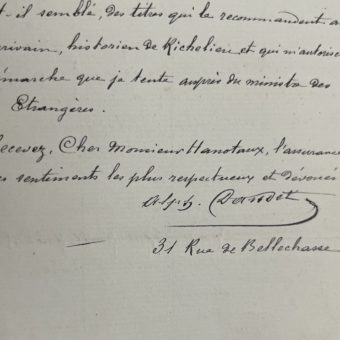 t-il semblé, des titres qui la recommandent a
crivain, historien de Richelieu et qui m'autorise
émarche que je tente auprès du ministre des
Etrangères.
Recevez, Cher Monsieur Hanotaux, l'assurance
es sentiments les plus respectueux et dévoués
Alph. Daudet
31 Rue de Bellechasse